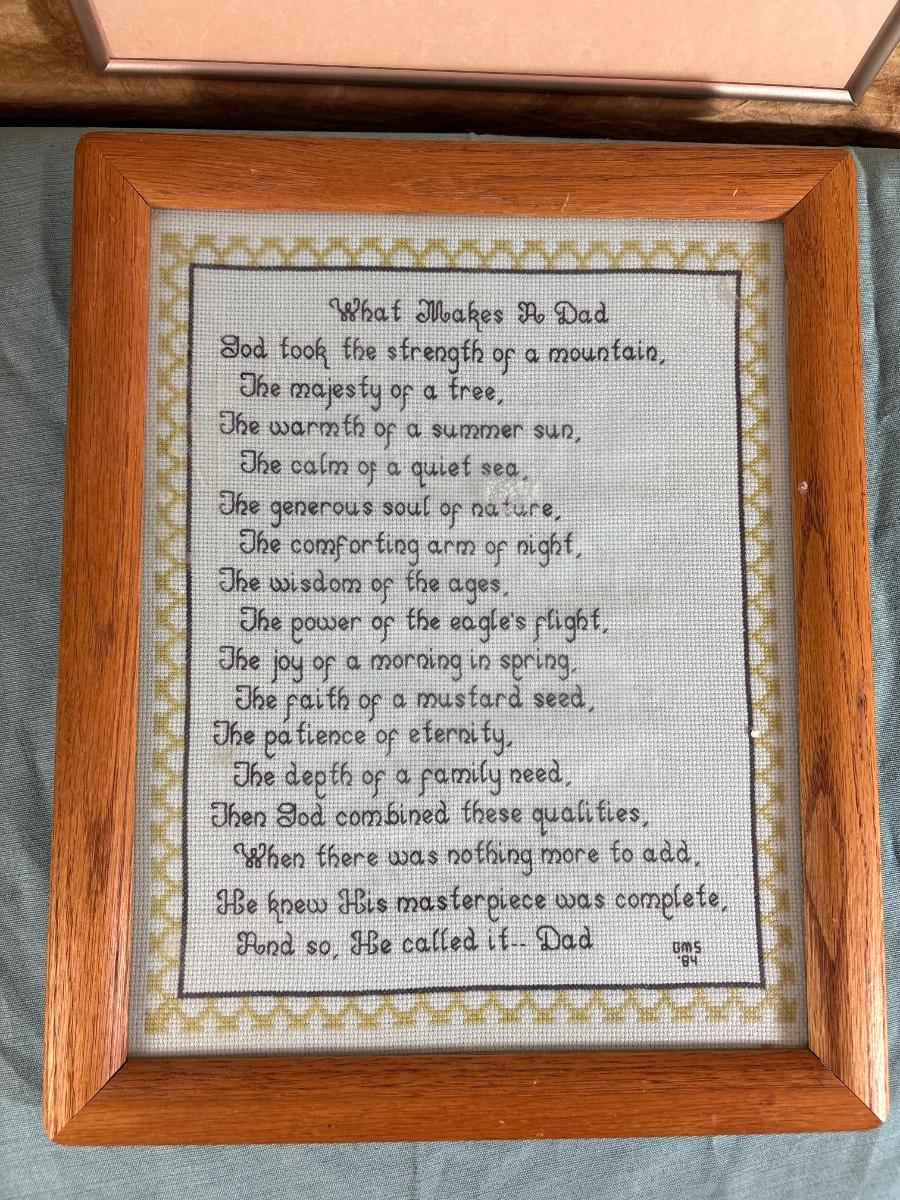 What Makes A Dad
God took the strength of a mountain,
The majesty of a tree,
The warmth of a summer sun,
The calm of a quiet sea,
The generous soul of nature,
The comforting arm of night,
The wisdom of the ages,
The power of the eagle's flight,
The joy of a morning in spring,
The faith of a mustard seed,
The patience of eternity,
The depth of a family need,
Then God combined these qualities,
When there was nothing more to add,
He knew His masterpiece was complete,
And so, He called it-- Dad
GMS
'84